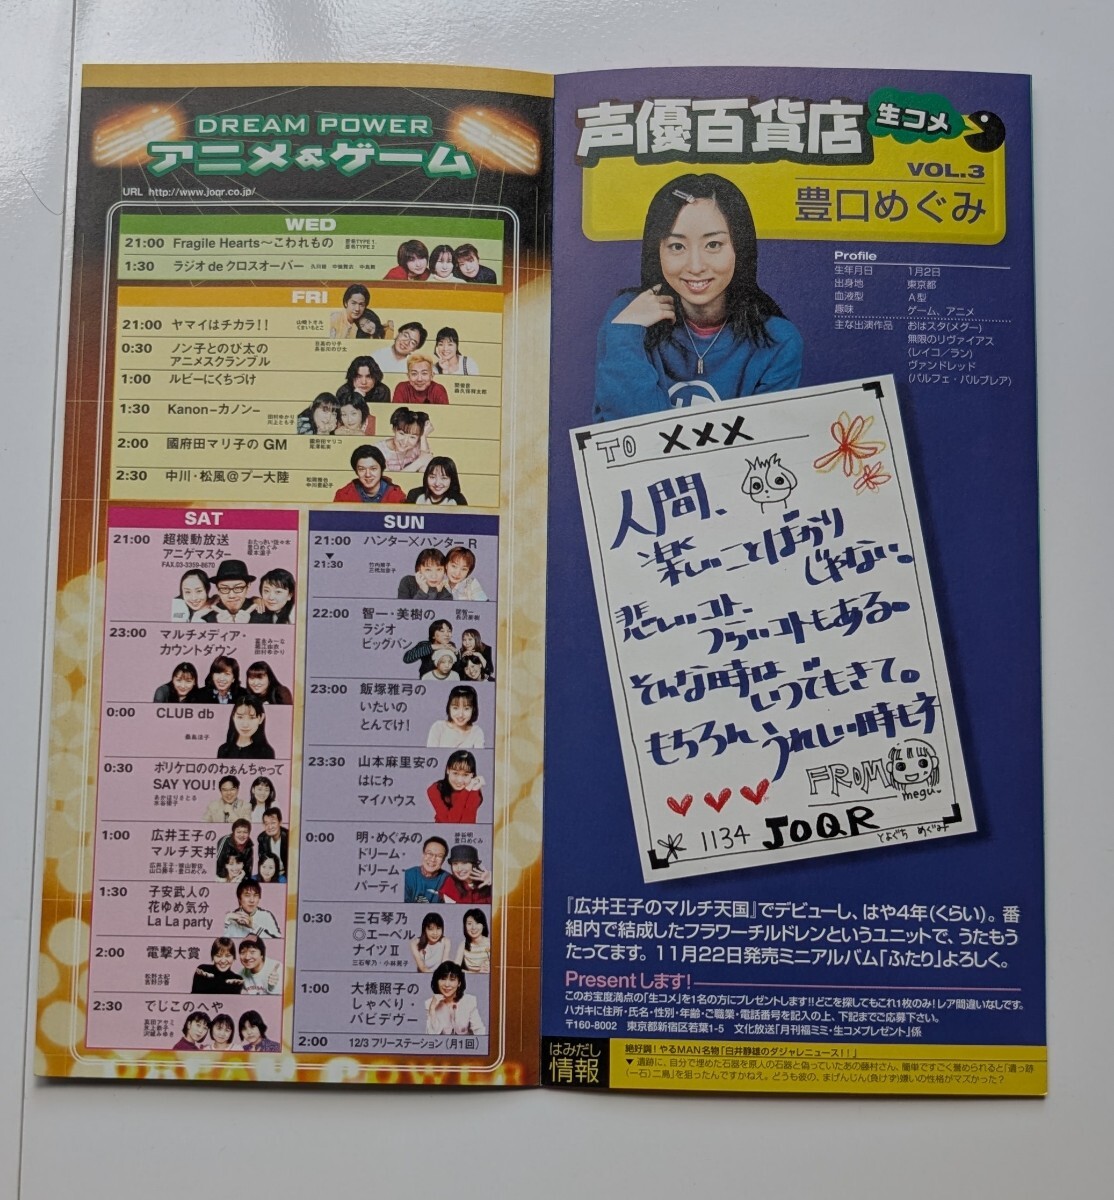 DREAM POWER
アニメ&ゲーム
URL http://www.joqr.co.jp/
WED
21:00 Fragile Hearts〜こわれもの
1:30 ラジオ de クロスオーバー
FRI
21:00 ヤマイはチカラ!!
0:30 ノン子とのび太の
アニメスクランブル
1:00 ルビーにくちづけ
1:30 Kanon−カノン−
田村ゆかり
川上とも子
2:00 國府田マリ子の GM
2:30 中川・松風@プー大陸
SAT
21:00 超機動放送
アニゲマスター
FAX.03-3359-8670
おたっきぃ佐々木
豊口めぐみ
榎本温子
23:00 マルチメディア・
カウントダウン
0:00 CLUB db
桑島法子
0:30 ポリケロののわぁんちゃって
SAY YOU!
あかほりさとる
水谷優子
1:00 広井王子の
マルチ天丼
1:30 子安武人の
花ゆめ気分
La La party
2:00 電撃大賞
2:30 でじこのへや
真田アサミ
氷上恭子
沢城みゆき
SUN
21:00 ハンター×ハンター R
▼
21:30
竹内順子
三橋加奈子
22:00 智一・美樹の
ラジオ
ビッグバン
23:00 飯塚雅弓の
いたいの
とんでけ!
23:30 山本麻里安の
はにわ
マイハウス
0:00 明・めぐみの
ドリーム・
ドリーム・
パーティ
神谷明
豊口めぐみ
0:30 三石琴乃
◎エーベル
ナイツⅡ
三石琴乃・小林晃子
1:00 大橋照子の
しゃべり・
バビデヴー
2:00 12/3 フリーステーション(月1回)
声優百貨店
生コメ
VOL.3
豊口めぐみ
Profile
生年月日 1月2日
出身地 東京都
血液型 A型
趣味 ゲーム、アニメ
主な出演作品 おはスタ(メグー)
無限のリヴァイアス
(レイコ/ラン)
ヴァンドレッド
(パルフェ・バルブレア)
TO ×××
人間、
楽しいことばかり
じゃない。
悲しいコト、
つらいコトもある。
そんな時は
いつでもきて。
もちろん うれしい時もネ
FROM
megu.
1134 JOQR
とよぐち めぐみ
『広井王子のマルチ天国』でデビューし、はや4年(くらい)。番
組内で結成したフラワーチルドレンというユニットで、うたもう
たってます。11月22日発売ミニアルバム「ふたり」よろしく。
Presentします!
このお宝度満点の「生コメ」を1名の方にプレゼントします!!どこを探してもこれ1枚のみ!レア間違いなしです。
ハガキに住所・氏名・性別・年齢・ご職業・電話番号を記入の上、下記までご応募下さい。
〒160-8002 東京都新宿区若葉1-5 文化放送「月刊福ミミ・生コメプレゼント」係
はみだし
情報
絶好調!やるMAN名物「臼井静雄のダジャレニュース!!」
▼遺跡に、自分で埋めた石器を原人の石器と偽っていたあの藤村さん、簡単ですごく誉められると「遺っ跡
(一石)二鳥」を狙ったんですかねえ。どうも彼の、まげんじん(負けず)嫌いの性格がマズかった?